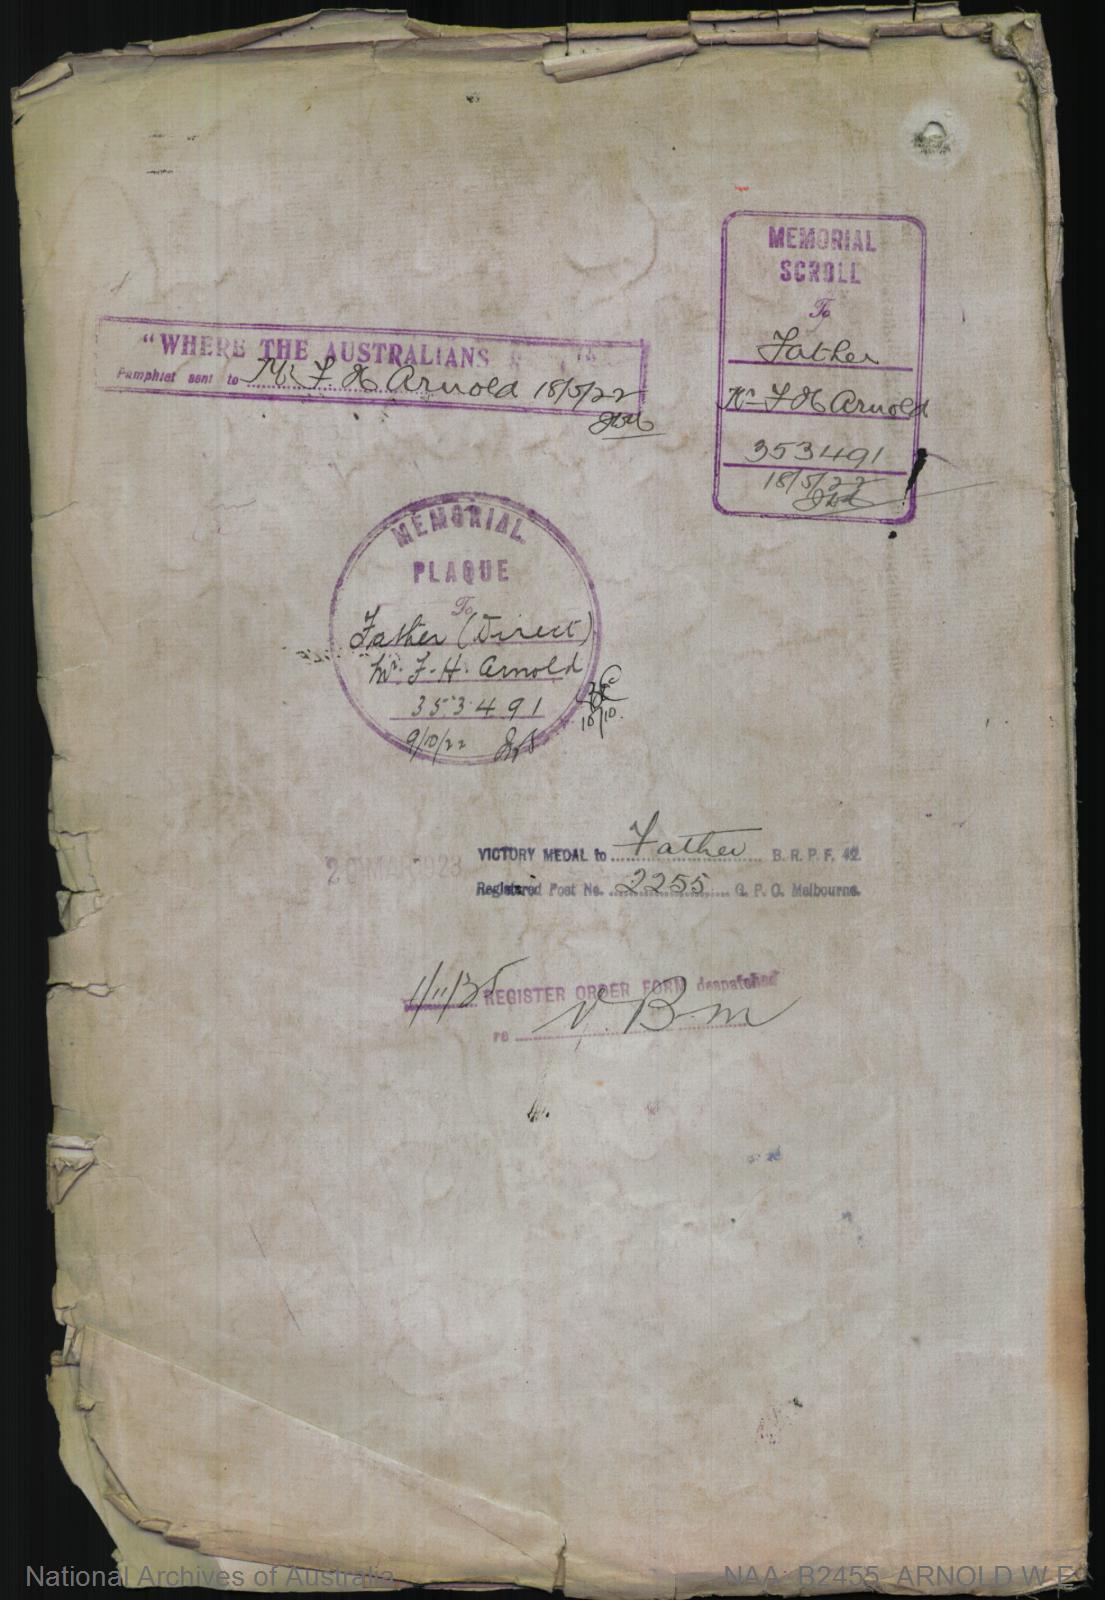 MEMORIAL
SCROLL
To
Father
Mr F H Arnold
353491
18/5/22
"WHERE THE AUSTRALIANS
Pamphlet sent to Mr F. H Arnold 18/5/22
MEMORIAL
PLAQUE
To
Father (Direct)
Mr. F. H. Arnold
353491
9/10/22
10/10.
VICTORY MEDAL to Father B. R. P. F. 42.
MAR 1923
Registered Post No. 2255 G. P. O. Melbourne.
REGISTER ORDER FORM despatched
re V. B. M
National Archives of Australia
NAA: B2455, ARNOLD W E